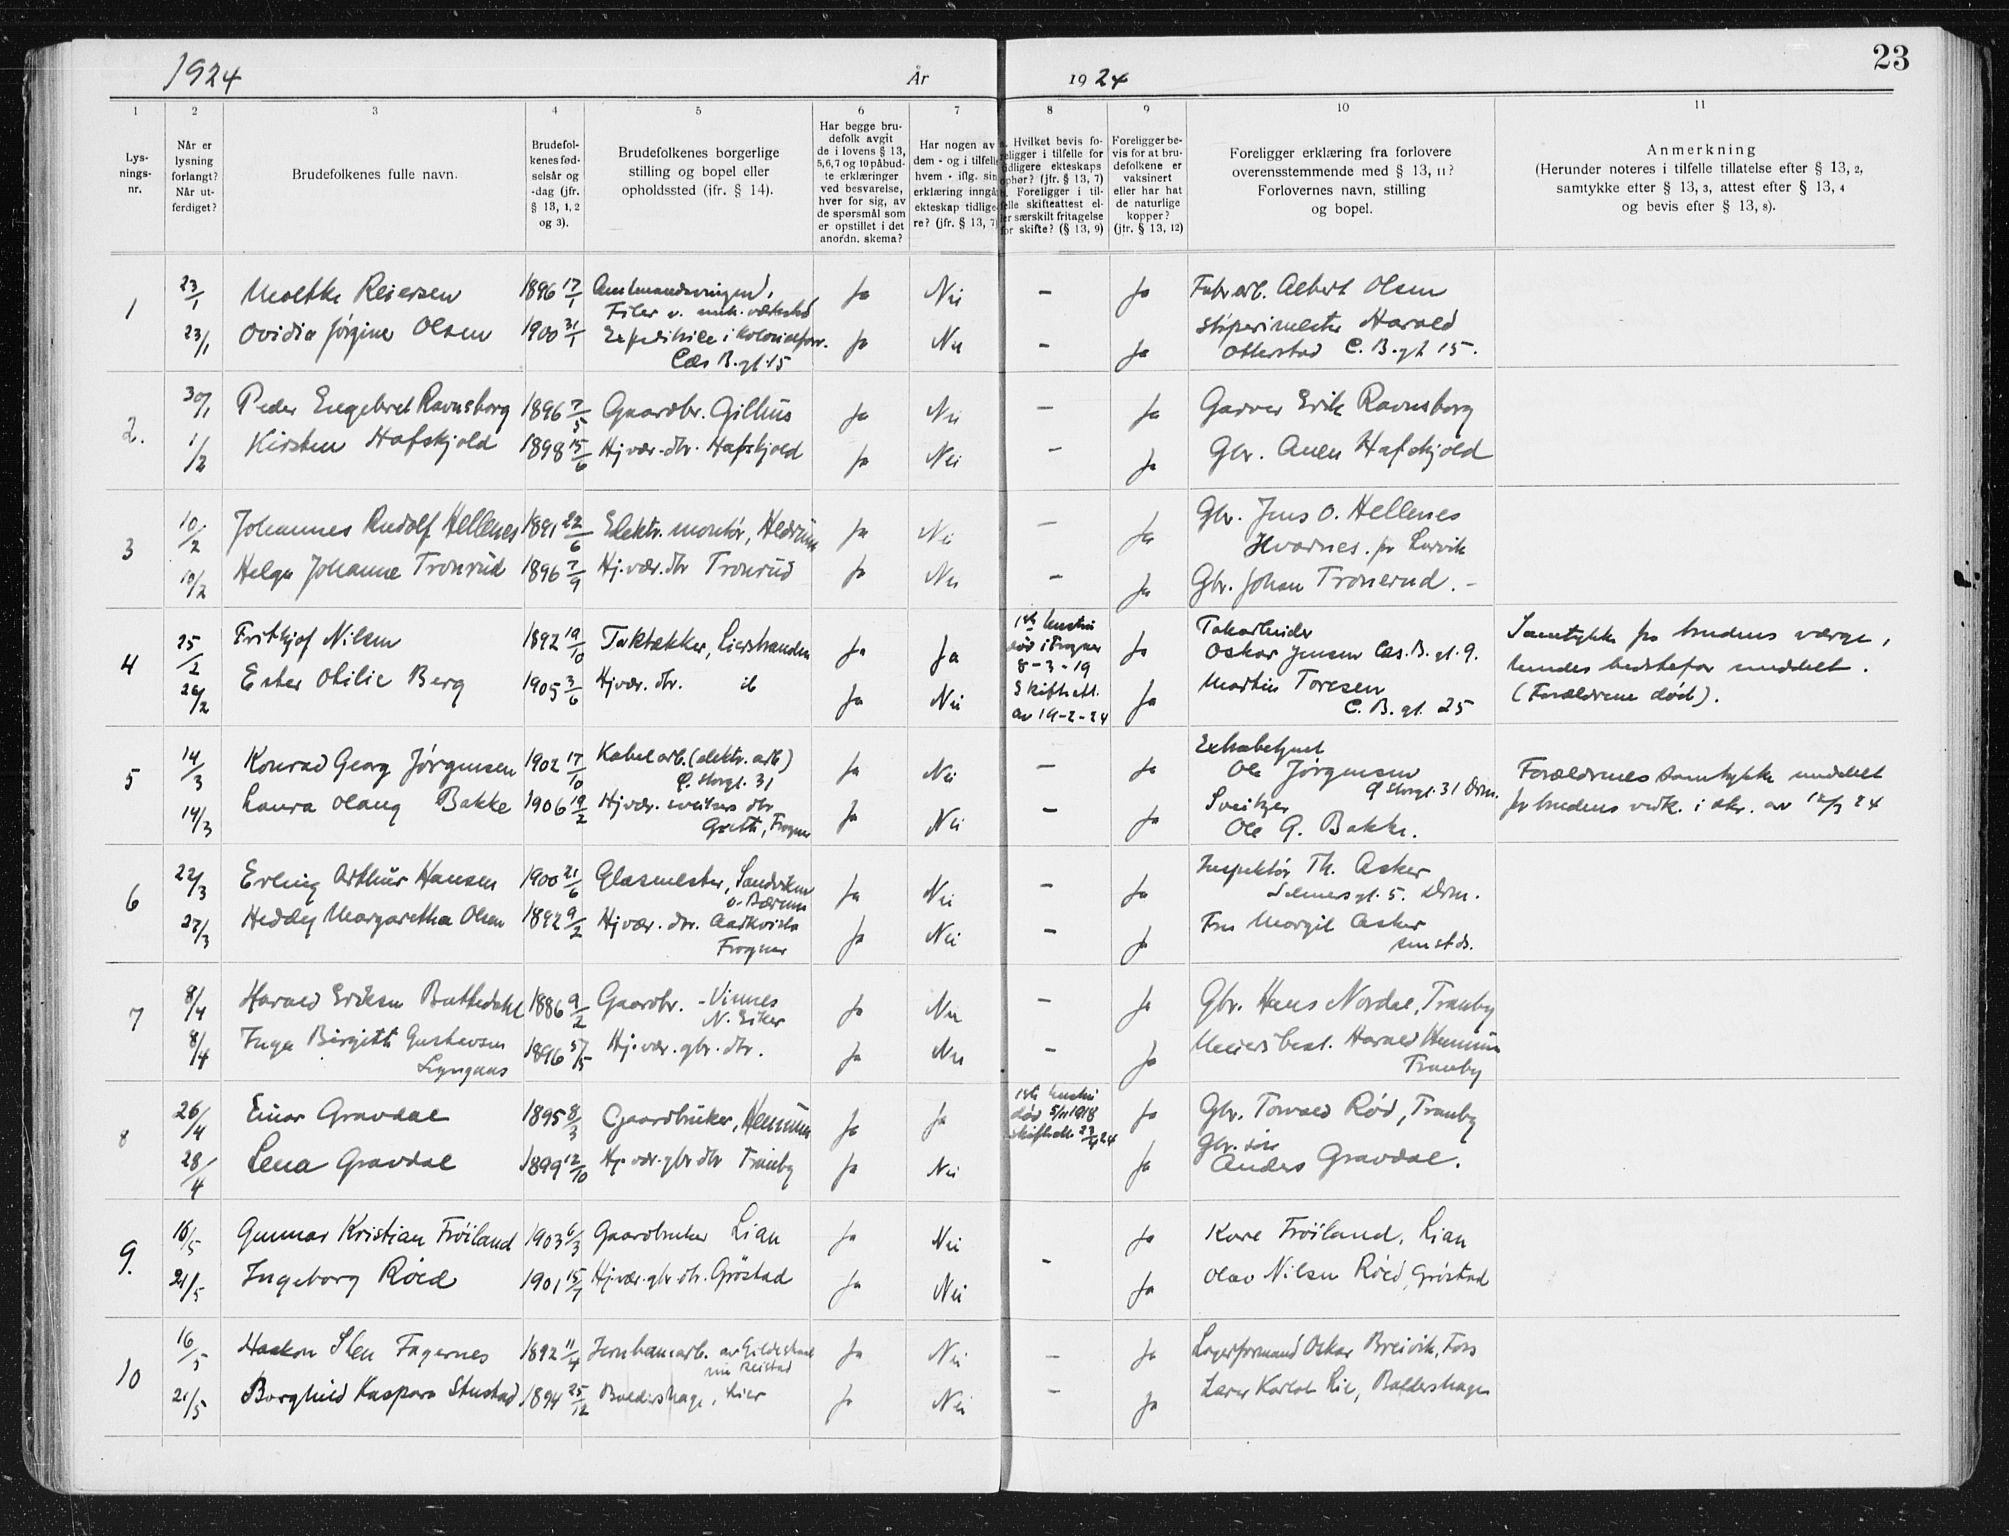 1924 År 1924 23
1 2 3 4 5 6 7 8 9 10 11
Lysningsnr.
Når er lysning forlangt? Når utferdiget?
Brudefolkenes fulle navn.
Brudefolkenes fødselsår og -dag (jfr. § 13, 1, 2 og 3).
Brudefolkenes borgerlige stilling og bopel eller opholdssted (jfr. § 14).
Har begge brudefolk avgit de i lovens § 13, 5, 6, 7 og 10 påbudte erklæringer ved besvarelse, hver for sig, av de spørsmål som er opstillet i det anordn. skema?
Har nogen av dem - og i tilfelle hvem - iflg. sin erklæring inngått ekteskap tidligere? (jfr. § 13, 7)
Hvilket bevis foreligger i tilfelle for tidligere ekteskaps ophør? (jfr. § 13, 7) Foreligger i tilfelle skifteattest eller særskilt fritagelse for skifte? (§ 13, 9)
Foreligger bevis for at brudefolkene er vaksinert eller har hat de naturlige kopper? (jfr. § 13, 12)
Foreligger erklæring fra forlovere overensstemmende med § 13, 11? Forlovernes navn, stilling og bopel.
Anmerkning
(Herunder noteres i tilfelle tillatelse efter § 13, 2, samtykke efter § 13, 3, attest efter § 13, 4 og bevis efter § 13, 8).
1 23/1 Moltke Reiersen 1896 17/1 Filer v. mek. Ja Nei – Ja Fabr.arb. Albert Olsen
23/1 Ovidia Jørgine Olsen 1900 31/1 i kolonialforr. Ja Nei – Ja Harald
B.gt. 15 Otterstad C. B.gt 15.
2. 30/1 Peder Engebret Ravnsborg 1896 7/5 Gaardbr. Gilhus Ja Nei – Ja Garver Erik Ravnsborg
1/2 Kirsten Hafskjold 1898 15/6 Hj.vær. dtr. Hafskjold Ja Nei – Ja Gbr. Hafskjold
3 10/2 Johannes Rudolf Hellenes 1891 22/6 Elektr. montør, Hedrum Ja Nei – Ja Gbr. Jens O. Hellenes
Hvarnes. pr Larvik
10/2 Helga Johanne Tronrud 1896 7/9 Hj.vær. dtr Tronrud Ja Nei – Ja Gbr. Johan Tronerud. –
4 25/2 Frithjof Nilsen 1892 19/10 Taktækker, Lierstranden Ja Ja 1ste hustru død i Frogner 8-3-19 Ja
Oskar Jensen Ces. B. gt. 9.
Samtykke fra brudens værge,
26/2 Ester Otilie Berg 1905 3/6 Hj.vær. dtr. ib Ja Nei Skifteatt. av 19-2-24 Ja Martin Toresen
C. B. gt. 25
hendes bedstefar meddelt.
(Forældrene død).
5 14/3 Konrad Georg Jørgensen 1902 17/10 Kabelarb. (elektr. arb) Ja Nei – Ja
Storgt. 31 Ole Jørgensen
Storgt. 31 Drm.
Forældrenes samtykke meddelt
14/3 Laura Olaug Bakke 1906 19/2 Hj.vær. sveitsers dtr Ja Nei – Ja Sveitzer
Frogner Ole G. Bakke.
for brudens vedk. i skr. av 12/3 24
6 22/3 Erling Arthur Hansen 1900 21/6 Glasmester, Sandviken Ja Nei – Ja Inspektør Th. Asker
v. Bærum gt. 5. Drm.
27/3 Margaretha Olsen 1892 9/2 Hj.vær. dtr. Ja Nei – Ja Fru Margit Asker
Frogner smstds.
7 8/4 Harald Eriksen Buttedahl 1886 9/2 Gaardbr. - Vinnes Ja Nei – Ja Gbr. Hans Nordal, Tranby
N. Eiker
8/4 Inga Birgitte Gustavsen 1896 5/5 Hj.vær. gbr. dtr. Ja Nei – Ja Meieribest. Harald Hennum
Lyngaas Tranby
8 26/4 Einar Gravdal 1895 8/3 Gaardbruker, Hennum Ja Ja 1ste hustru død 5/11 1918 skifteatt. 23/4 24 Ja Gbr. Torvald Rød, Tranby
28/4 Lena Gravdal 1899 12/10 Hj. vær. gbr dtr Tranby Ja Nei Ja Gbr. søn
Anders Gravdal.
9. 16/5 Gunnar Kristian Frøiland 1903 6/3 Gaardbruker Lian Ja Nei – Ja Kare Frøiland, Lian
21/5 Ingeborg Røed 1901 15/1 Hj.vær. gbr dtr. Grøstad Ja Nei Ja Olav Nilsen Røed, Grøstad
10 16/5 Haakon Sten Fagernes 1892 11/4 Jernbanearb. av Gildeskaal Ja Nei – Ja Lagerformand Oskar Breivik, Foss
nu Reistad
21/5 Borghild Kaspara Stustad 1894 25/12 Baldershage, Lier Ja Nei – Ja Lærer Karlot Lie, Baldershage